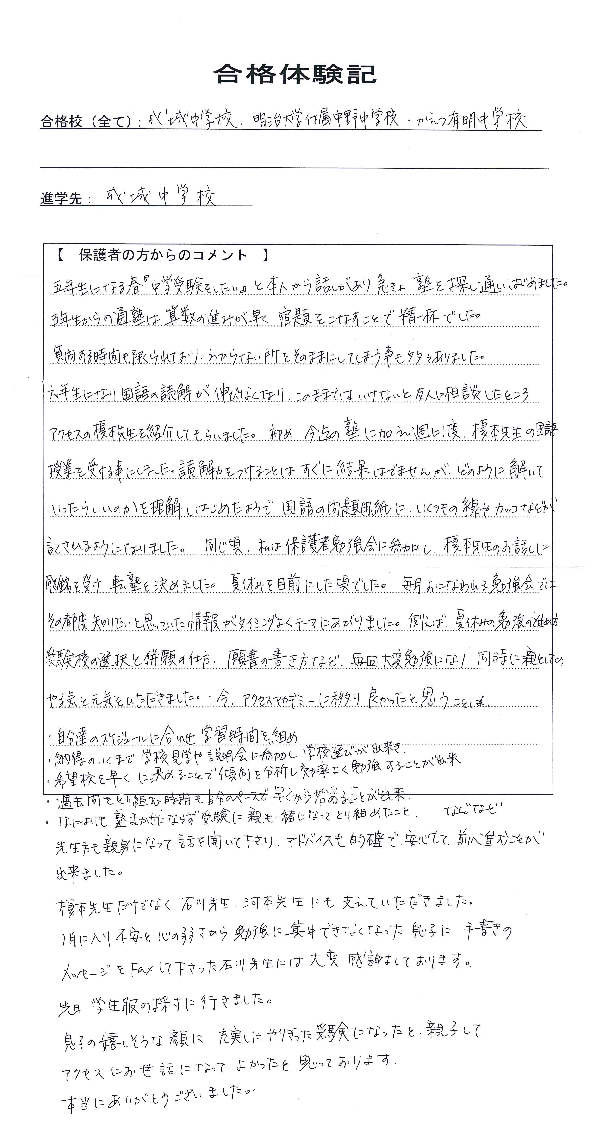 合格体験記
合格校（全て）：成城中学校．明治大学付属中野中学校．かえつ有明中学校
進学先：成城中学校
【　保護者の方からのコメント　】
五年生になる春『中学受験をしたい』と本人から話しがあり急きょ塾を探し通いはじめました。
五年生からの通塾は算数の進みが早く宿題をこなすことで精一杯でした。
質問する時間も限られており、わからない所をそのままにしてしまう事も多々ありました。
六年生になり国語の読解が伸びなくなり、このままではいけないと友人に相談したところ
アクセスの榎本先生を紹介してもらいました。初め今迄の塾に加え週に一度、榎本先生の国語
授業を受ける事にしました。読解力をつけることはすぐに結果はでませんが、どのように解いて
いったらいいのかを理解しはじめたようで国語の問題用紙に、いくつもの線やカッコなどが
記されるようになりました。同じ頃、私は保護者勉強会に参加し、榎本先生のお話しに
感銘を受け転塾を決めました。夏休みを目前にした頃でした。毎月おこなわれる勉強会では
その都度知りたいと思っていた情報がタイミングよくテーマにあがりました。例えば、夏休みの勉強の進め方
受験校の選択と併願の仕方、願書の書き方など、毎回大変勉強になり同時に親としての
やる気と元気をいただきました。今、アクセスアカデミーに移り良かったと思うことは
・自分達のスケジュールに合わせ学習時間を組め
・納得のいくまで学校見学や説明会に参加し学校選びが出来き
・希望校を早くに決めることで傾向を分析し効率よく勉強することが出来
・過去問をとり組む時期も自分のペースで早くから始めることが出来
・なにより塾まかせにならず受験に親も一緒になってとり組めたこと、などなど
先生方も親身になって話を聞いて下さり、アドバイスも的確で、安心して前へ進むことが
出来ました。
榎本先生だけでなく石川先生、河本先生にも支えていただきました。
1月に入り不安と心の弱さから勉強に集中できなくなった息子に手書きの
メッセージをFaxして下さった石川先生には大変感謝しております。
先日学生服の採寸に行きました。
息子の嬉しそうな顔に充実したやりきった受験になったと、親子して
アクセスにお世話になってよかったと思っております．
本当にありがとうございました。